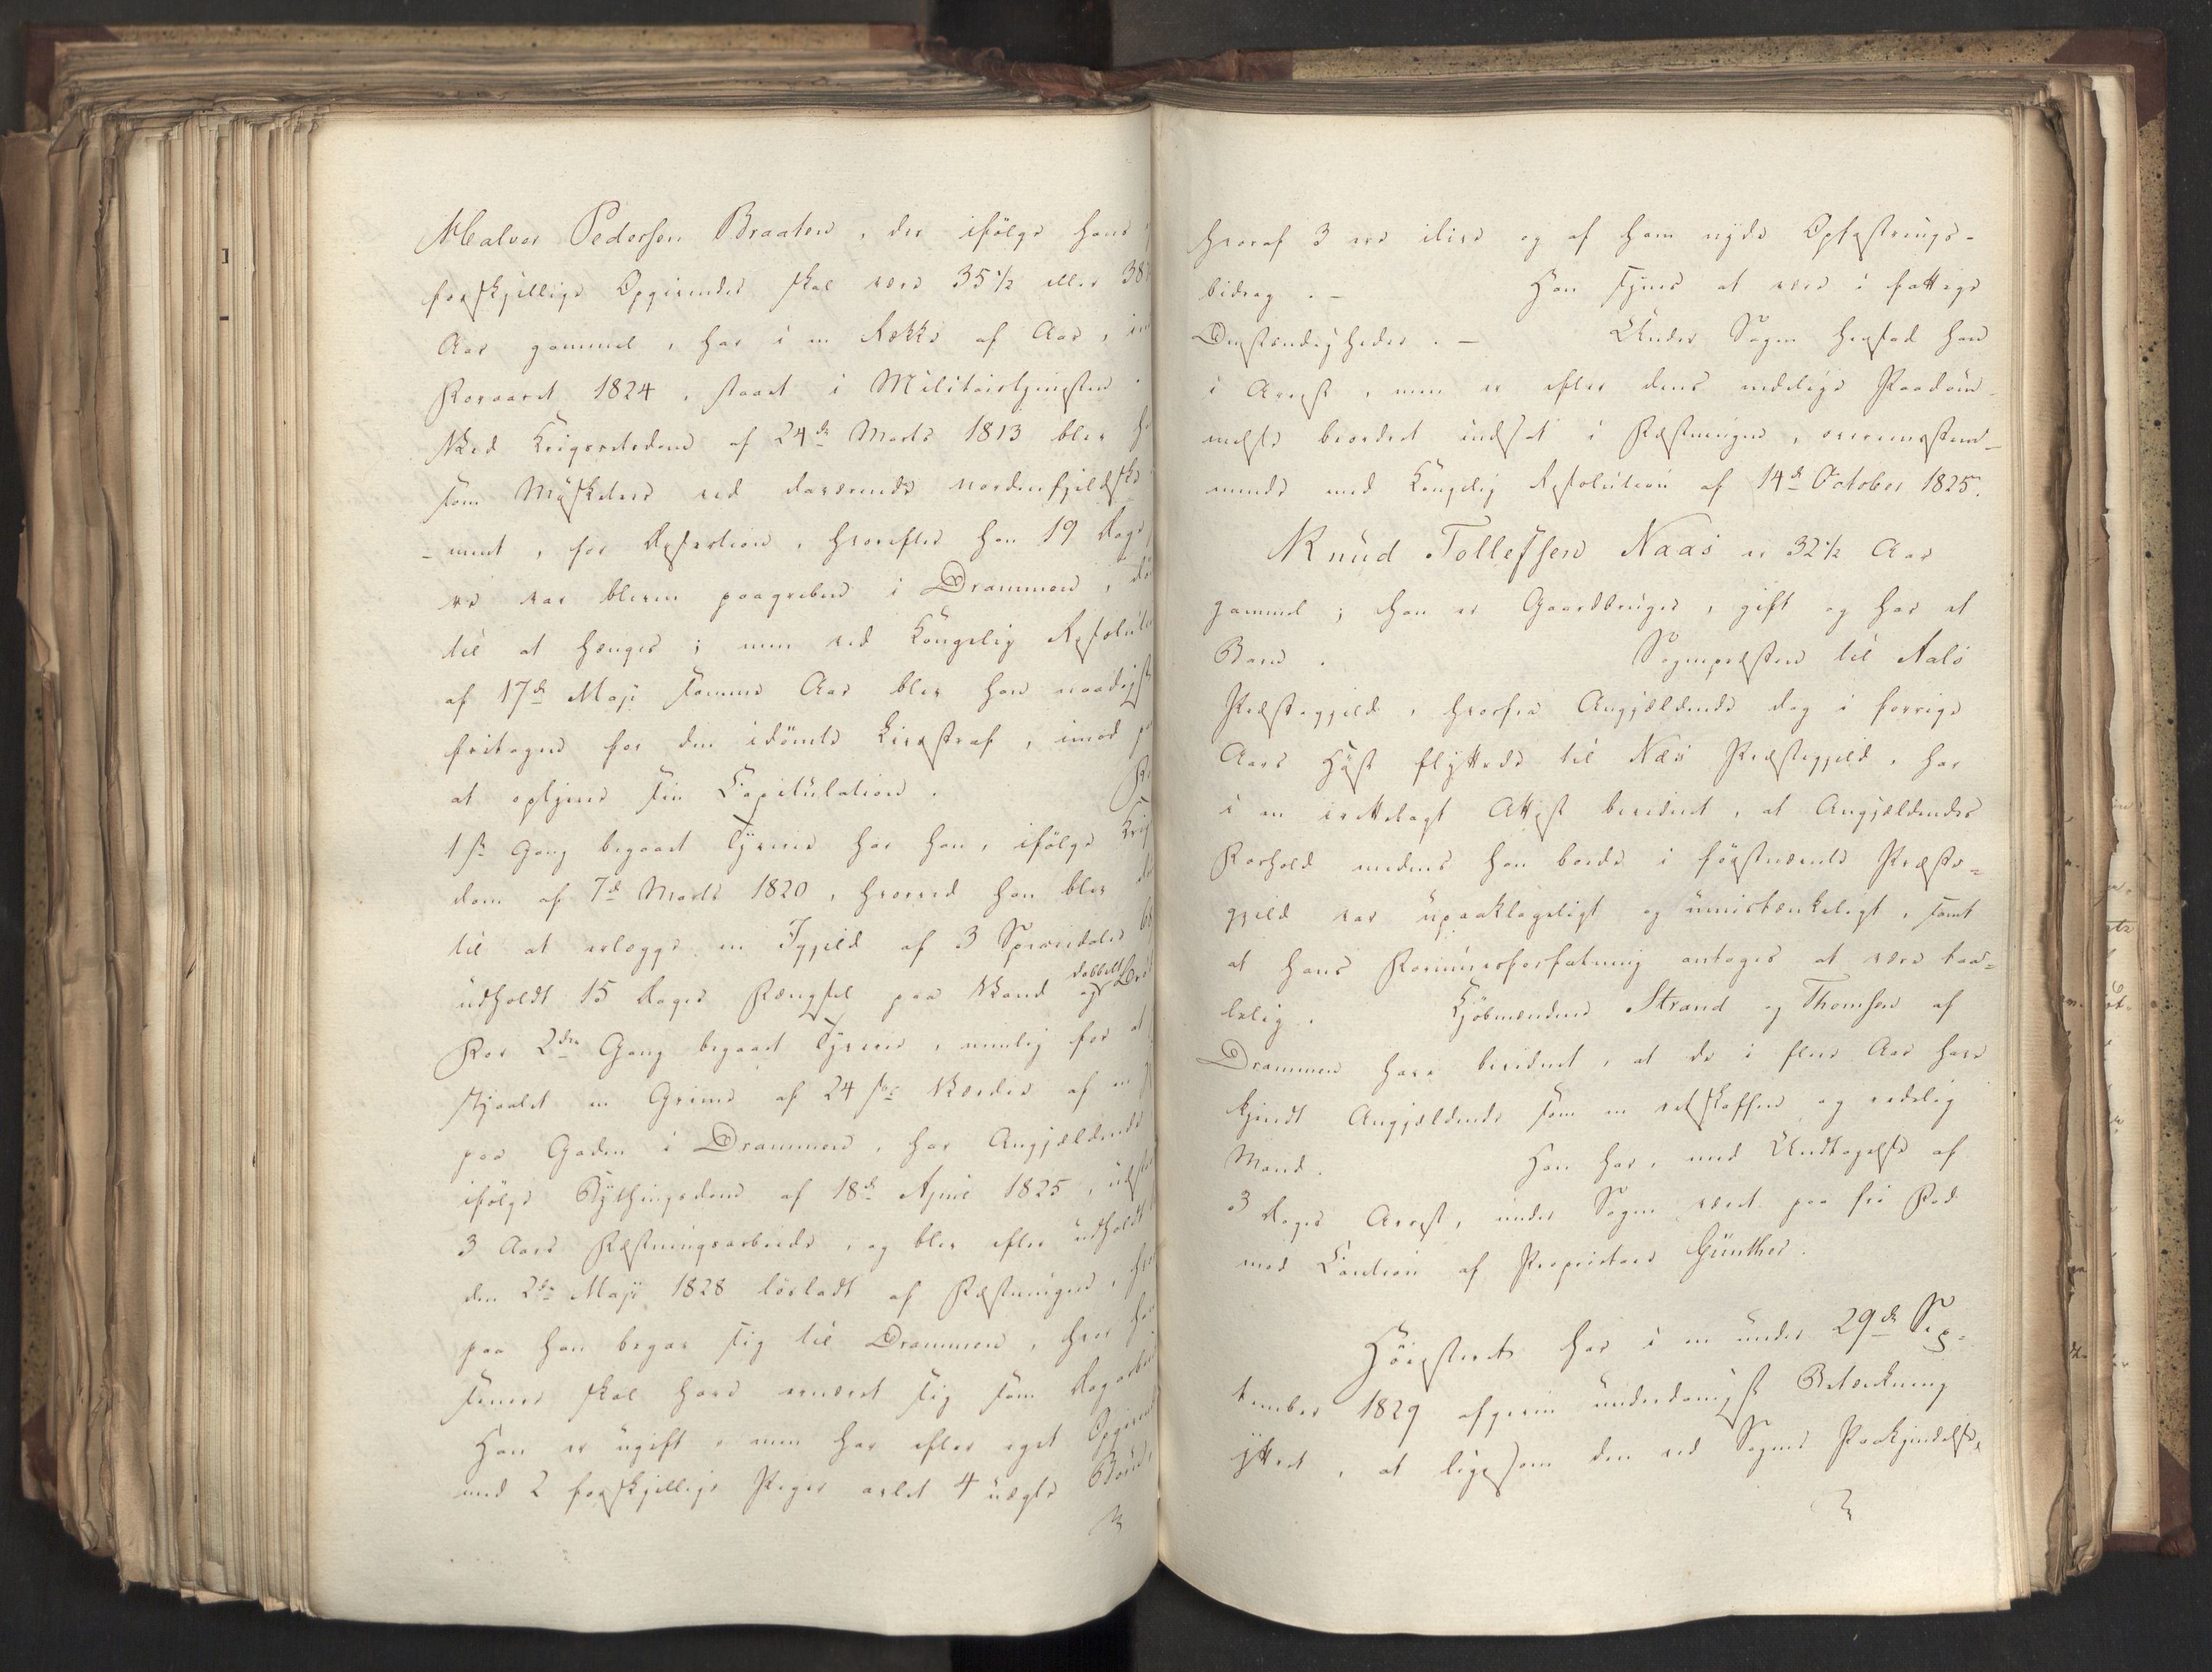 Halvor Pedersen Braaten, der ifölge hans
forskjellige Opgivender skal være 35 1/2 eller 38
Aar gammel, har i en Række af Aar, in
Foraaret 1824, staaet i Militairtjenesten.
Ved Krigsretsdom af 24de Marts 1813 blev h
som Musketeer ved daværende nordenfjeldske
-ment, for Desertion, hvorefter han 19 Dage
var bleven paagreben i Drammen, dö
til at hænges; men ved Kongelig Resoluti
af 17de Maji samme Aar blev han naadigst
fritagen for den idömte Livsstraf, imod
at optjene sin Capitulation. Fo
1ste Gang begaaet Tyverie har han, ifölge Krig
dom af 7de Marts 1820, hvorved han blev dö
til at erlægge en Igjeld af 3 Speciedaler
udholdt 15 Dages Fængsel paa Vand og dobbelt Bröd
For 2den Gang begaaet Tyverie, nemlig for at
stjaalet en Grime af 24 sk: Værdie af en
paa Gaden i Drammen, har Angjældende
ifölge Bythingsdom af 18de April 1825, udst
3 Aars Fæstningsarbeide, og blev efter udholdt
den 2den Maji 1828 lösladt af Fæstningen, hvor
paa han begav sig til Drammen, hvor han
senere skal have ernæret sig som Dagarbei
Han er ugift, men har efter eget Opgivend
med 2 forskjellige Piger avlet 4 uægte Börn,
hvoraf 3 ere ilive og af ham nyde Opfostrings-
bidrag. - Han synes at være i fattige
Omstændigheder. - Under Sagen hensad han
i Arrest, men er efter dens endelige Paadöm-
melse beordret indsat i Fæstningen, overeenstem-
mende med Kongelig Resolution af 14de October 1825.
Knud Tollefsen Naas er 32 1/2 Aar
gammel; han er Gaardbruger, gift og har et
Barn. Sognepræsten til Aals
Præstegjeld, hvorfra Angjældende dog i forrige
Aars Höst flyttede til Næs Præstegjeld, har
i en irettelagt Attest bevidnet, at Angjældendes
Forhold medens han boede i förstnævnte Præste=
gjeld var upaaklageligt og umistænkeligt, samt
at hans Formuesforfatning antages at være taa=
lelig. Kjöbmændene Strand og Thomsen af
Drammen have bevidnet, at de i flere Aar have
kjendt Angjældende som en retskaffen og redelig
Mand. Han har, med Undtagelse af
3 Dages Arrest, under Sagen været paa fri Fod
mod Caution af Proprietair Günther.
Höiesteret har i en under 29de Sep=
tember 1829 afgiven underdanigst Betænkning
yttret, at ligesom den ved Sagens Paakjendelse,